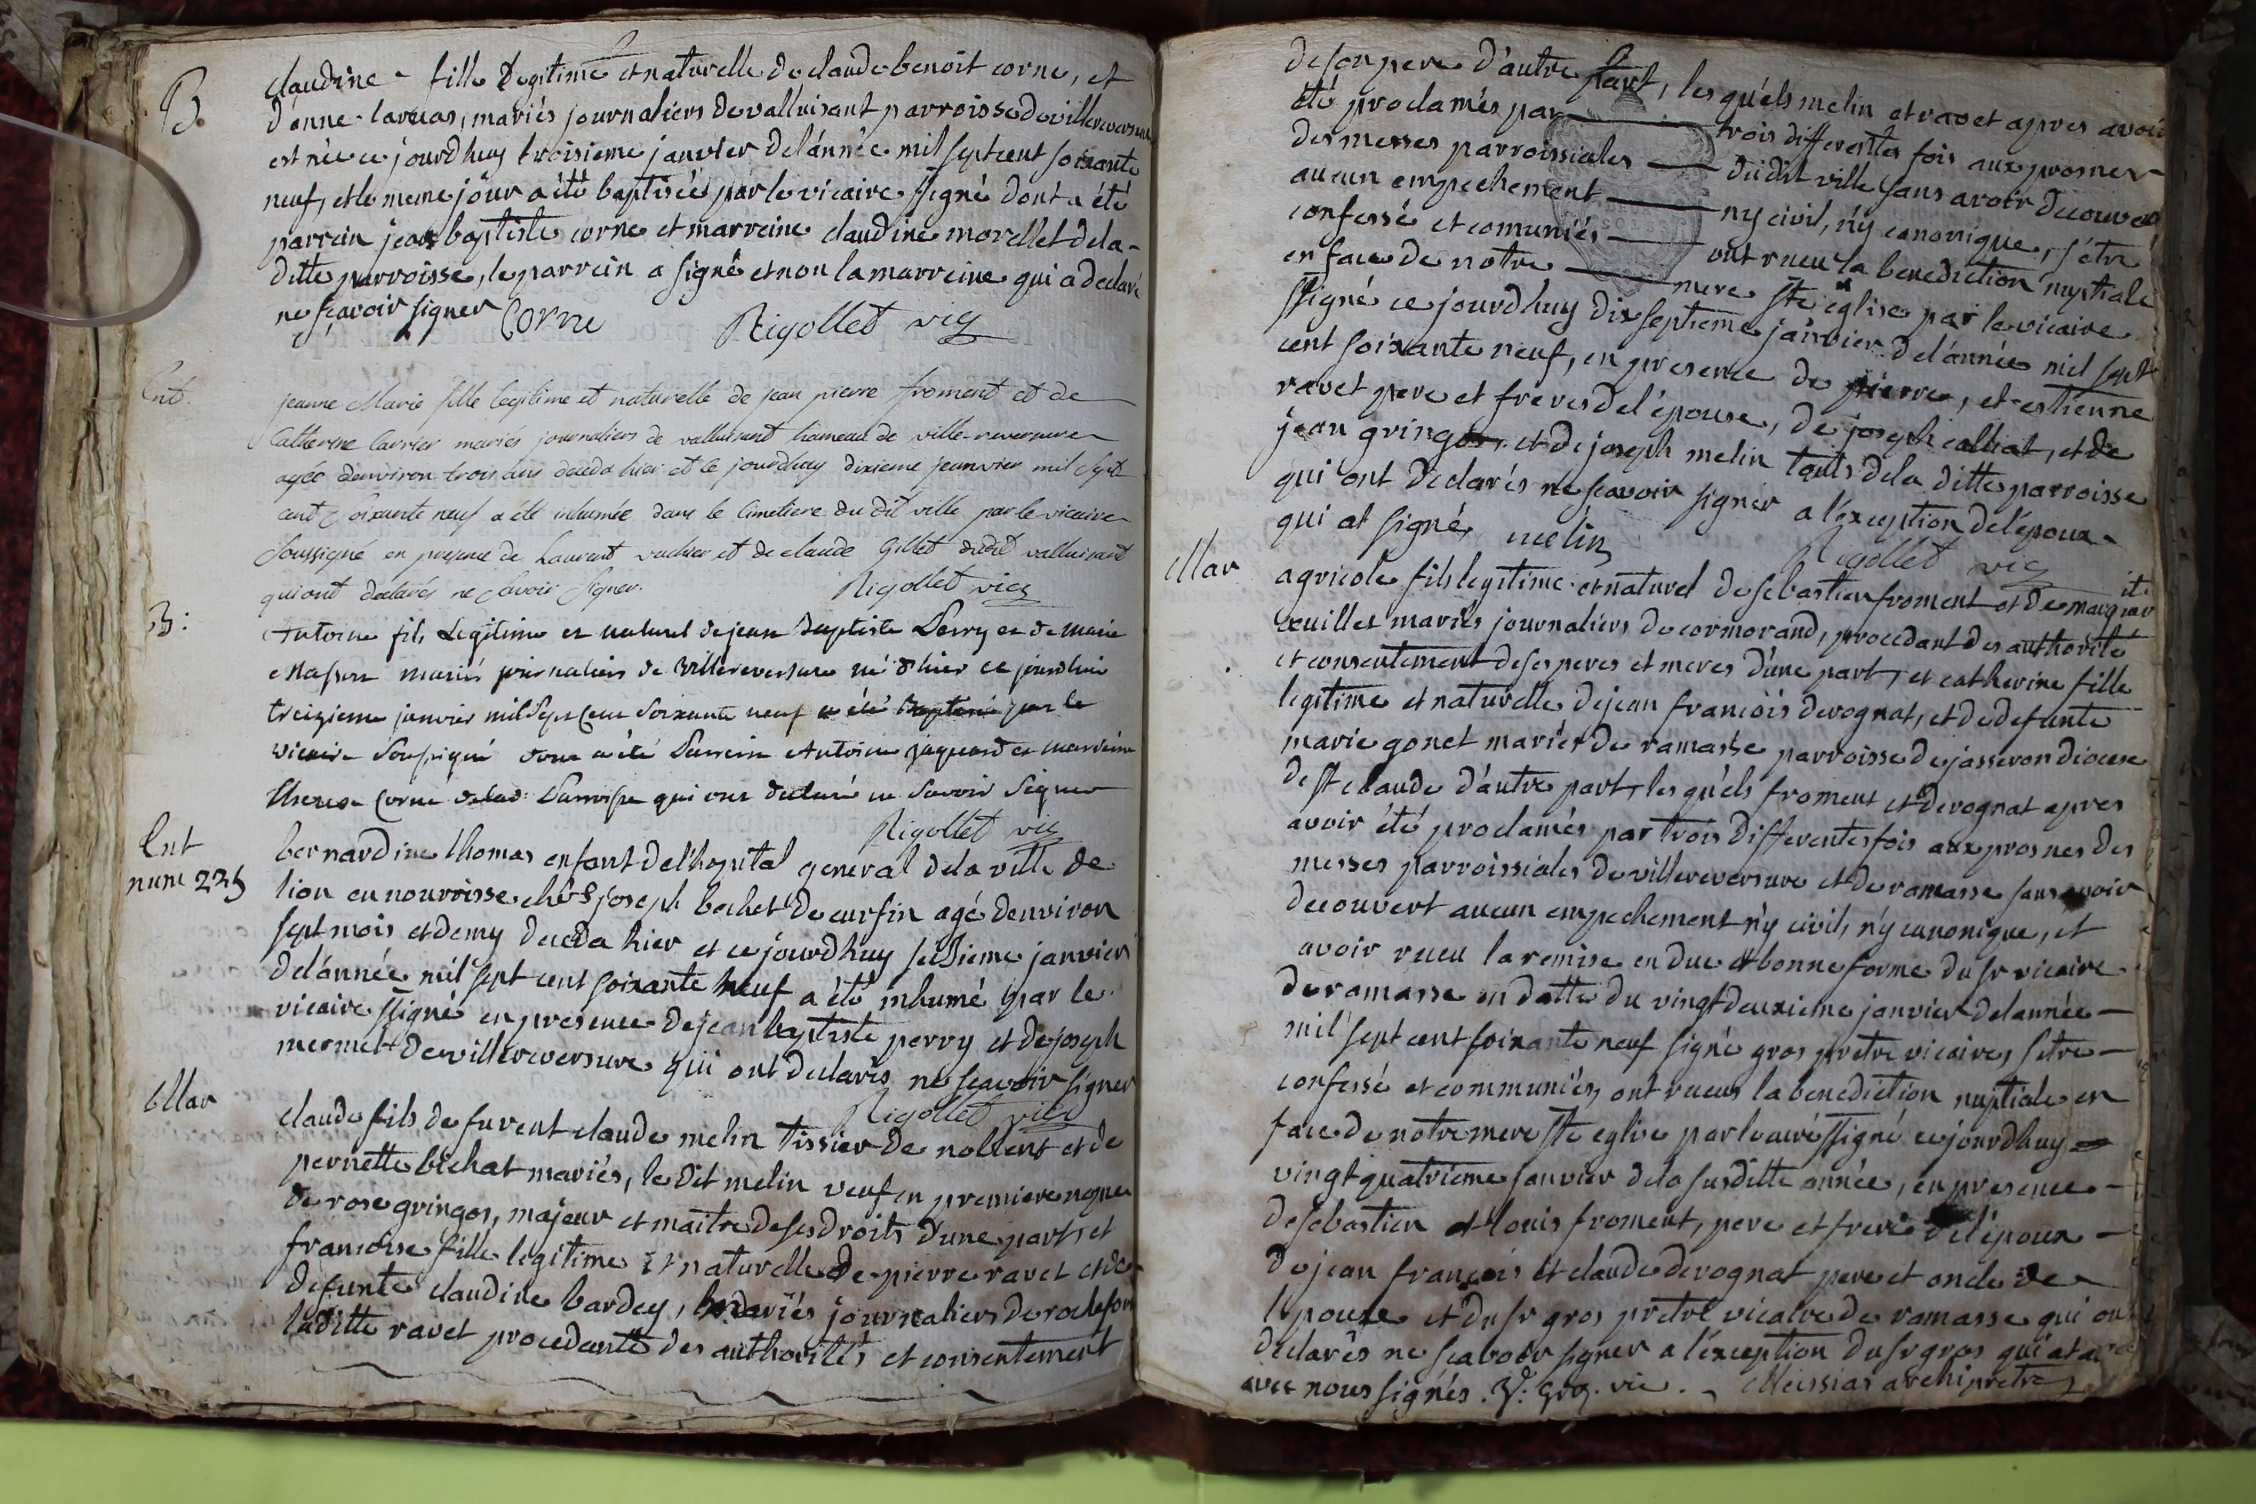 B.
claudine fille legitime et naturelle de claude benoit corne, et
d'anne laruas, mariés journaliers de valluisant parroisse de villereversure
est née ce jourdhuy troisieme janvier de lánnée mil sept cent soixante
neuf, et le meme jour a été baptisée par le vicaire ssigné dont a été
parrein jean baptiste corne et marreine claudine morellet de la
ditte parroisse, le parrein a signé et non la marreine qui a declaré
ne scavoir signer Corne Rigollet vic
Ent.
jeanne Marie fille legitime et naturelle de jean pierre froment et de
Catherine Carrier mariés journaliers de valluisant hameau de villereversure
agée denviron trois ans deceda hier et ce jourdhuy dixieme jeanvier mil sept
cent soixante neuf a été inhumée dans le Cimetiere du dit ville par le vicaire
soussigné en presence de Laurent vuchier et de claude Gillet dudit valluisant
qui ont declarés ne savoir signer. Rigollet vic
B:
Antoine fils Legitime et naturel de jean Baptiste Perry et de Marie
mariés journaliers de Villereversure né d'hier ce jourdhui
treizieme janvier mil sept Cent soixante neuf a été baptisé par le
vicaire soussigné dont a été Parrein Antoine jaquand et marreine
Therese Corne de lad: Parroisse qui ont declaré ne savoir signer
Rigollet vic
Ent
num 235
bernardine thomas enfant de l'hopital general de la ville de
lion en nourrisse chés joseph bechet de curfin agé denviron
sept mois et demy deceda hier et ce jourdhuy seisieme janvier
delánnée mil sept cent soixante neuf a été inhumé par le
vicaire ssigné en presence de jean baptiste perry et de joseph
mermet de villereversure qui ont declarés ne scavoir signer
Rigollet vic
Mar
claude fils de furent claude melin tissier de nollent et de
pernette bichat mariés, le dit melin veuf en premiere nopce
de rose gringos, majeur et maitre de ses droits d'une part, et
francoise fille legitime et naturelle de pierre ravet et de
defunte claudine bardey, mariés journaliers de rochefort
laditte ravet procedante des authorités et consentement
de son pere d'autre part, les quéls melin et ravet apres avoir
été proclamés par trois differentes fois aux prosnes
des messes parroissiales dudit ville sans avoir decouvert
aucun empechement ny civil, n'y canonique, s'étre
confessé et comuniés ont rueu la benediction nuptiale
en face de notre mere ste église par le vicaire
ssigné ce jourdhuy dix septieme janvier de lánnée mil sept
cent soixante neuf, en presence de pierre, et estienne
ravet pere et freres de l'épouse, de joseph calliat, et de
jean gringos, et de joseph melin touts de la ditte parroisse
qui ont declarés ne scavoir signer a l'exception de l'époux
qui at signé, melin Rigollet vic
Mar
agricole fils legitime et naturel de sebastien froment et de marguerite
cuillet mariés journaliers de cormorand, procedant des authorité
et consentement de ses peres et meres d'une part, et catherine fille
legitime et naturelle de jean francois derognat, et de defunte
marie gonet mariés de ramasse parroisse de jasseron diocese
de st claude d'autre part, les quéls froment et derognat apres
avoir été proclamés par trois differentes fois aux prosnes des
messes parroissiales de villereversure et de ramasse sans avoir
decouvert aucun empechement n'y civil, n'y canonique, et
avoir rueu la remise en due et bonne forme du sr vicaire
de ramasse en datte du vingt deuxieme janvier de lannée
mil sept cent soixante neuf signé gros pretre vicaire, sétre
confessé et communiés, ont rueus la benediction nuptiale en
face de notre mere ste eglise par le vicaire ssigné ce jourdhuy
vingt quatrieme janvier de la susditte année, en presence
de sebastien et louis froment, pere et frere de l'époux
de jean francois et claude derognat pere et oncle de
l'epouse et du sr gros pretre vicaire de ramasse qui ont
declarés ne scavoir signer a l'éxception du sr gros qui at
avec nous signés. gros. vic. Meissias archipretre